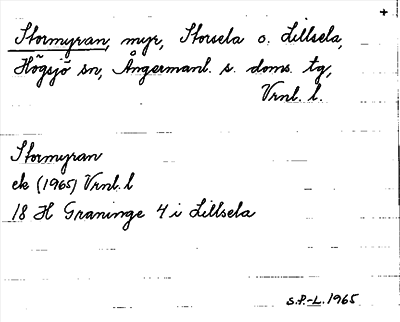 +
Stormyran, myr, Storsela o. Lillsela,
Högsjö sn, Ångermanl. s. doms. tg,
Vrnl. l.
Stormyran
ek (1965) Vrnl. l
18 H Graninge 4 i Lillsela
S.P.-L. 1965